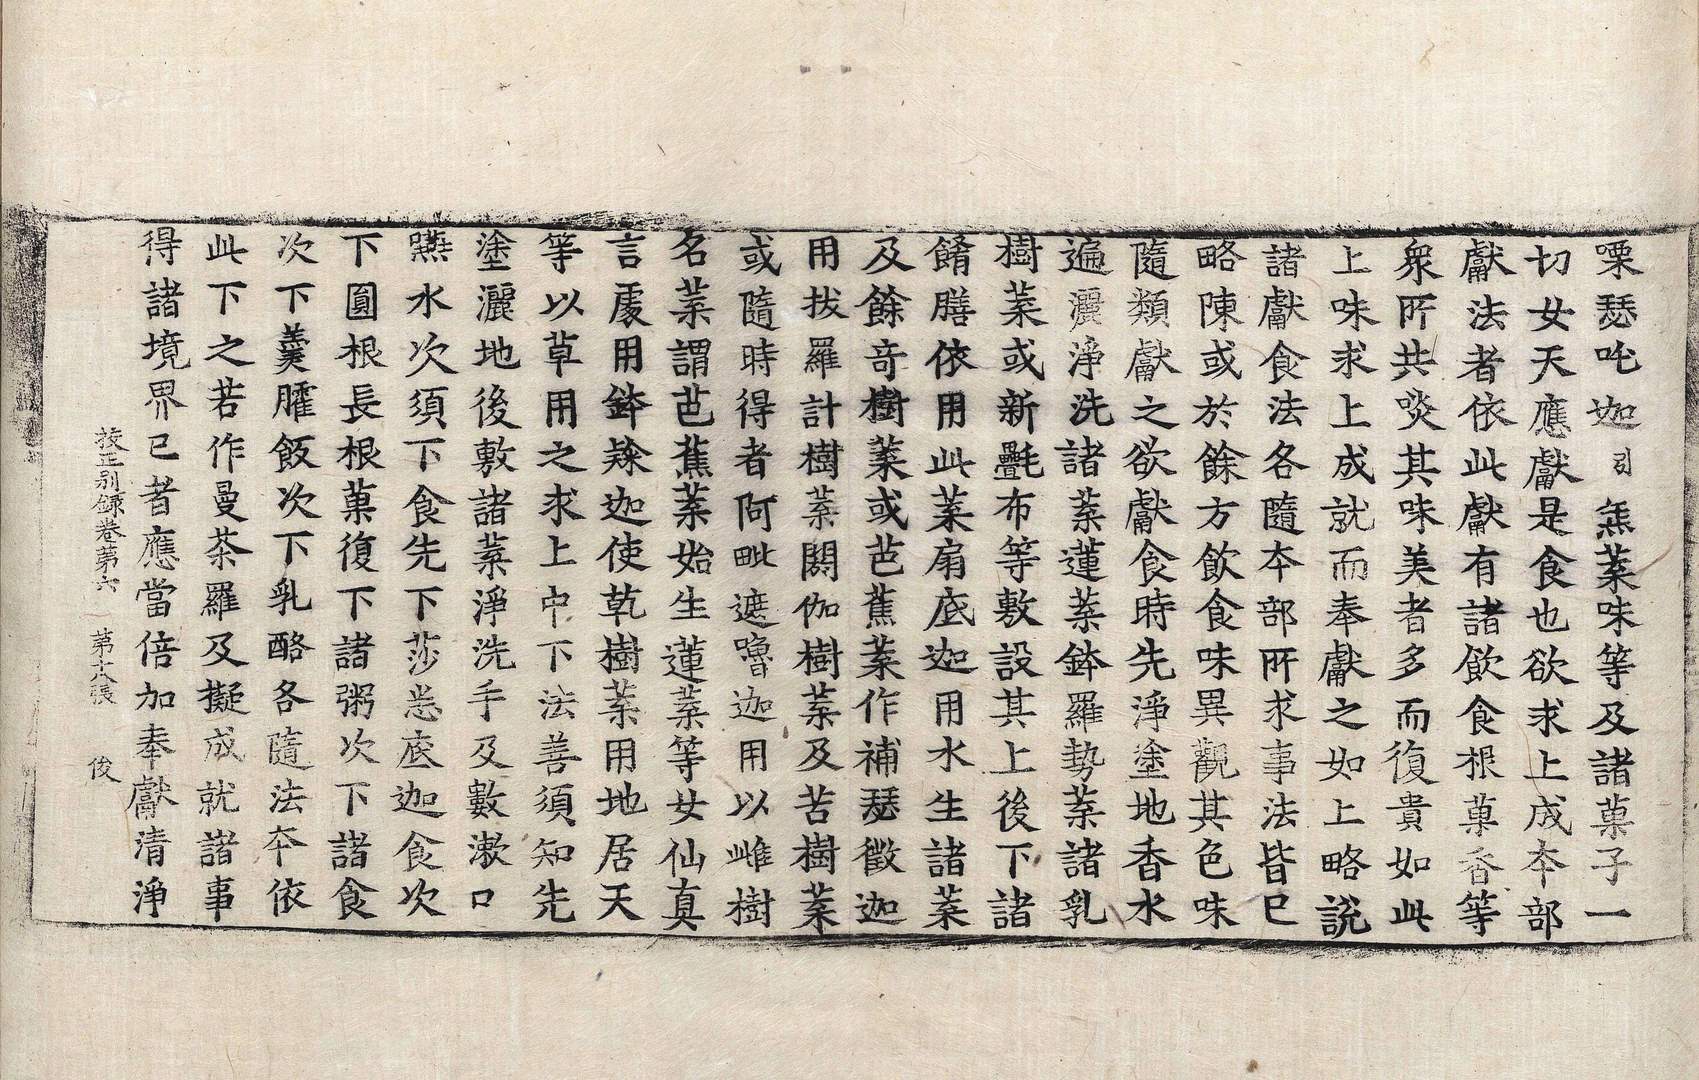 㗚瑟吒迦引羔菜味等及諸菓子一
切女天應獻是食也欲求上成夲部
獻法者依此獻有諸飲食根菓香等
衆所共啖其味美者多而復貴如此
上味求上成就而奉獻之如上略說
諸獻食法各隨夲部所求事法皆已
略陳或於餘方飲食味異觀其色味
隨類獻之欲獻食時先淨塗地香水
遍灑淨洗諸葉蓮葉鉢羅勢葉諸乳
樹葉或新㲲布等敷設其上後下諸
餚膳依用此葉扇底迦用水生諸葉
及餘奇樹葉或芭蕉葉作補瑟徵迦
用拔羅計樹葉閼伽樹葉及苦樹葉
或隨時得者阿毗遮嚕迦用以雌樹
名葉謂芭蕉葉始生蓮葉等女仙真
言處用鉢隸迦使乾樹葉用地居天
等以草用之求上中下法善須知先
塗灑地後敷諸葉淨洗手及數漱口
嚥水次須下食先下莎悉底迦食次
下圓根長根菓復下諸粥次下諸食
次下羹臛飯次下乳酪各隨法夲依
此下之若作曼茶羅及擬成就諸事
得諸境界已者應當倍加奉獻清淨
挍正别録卷苐六 苐十八張 俊